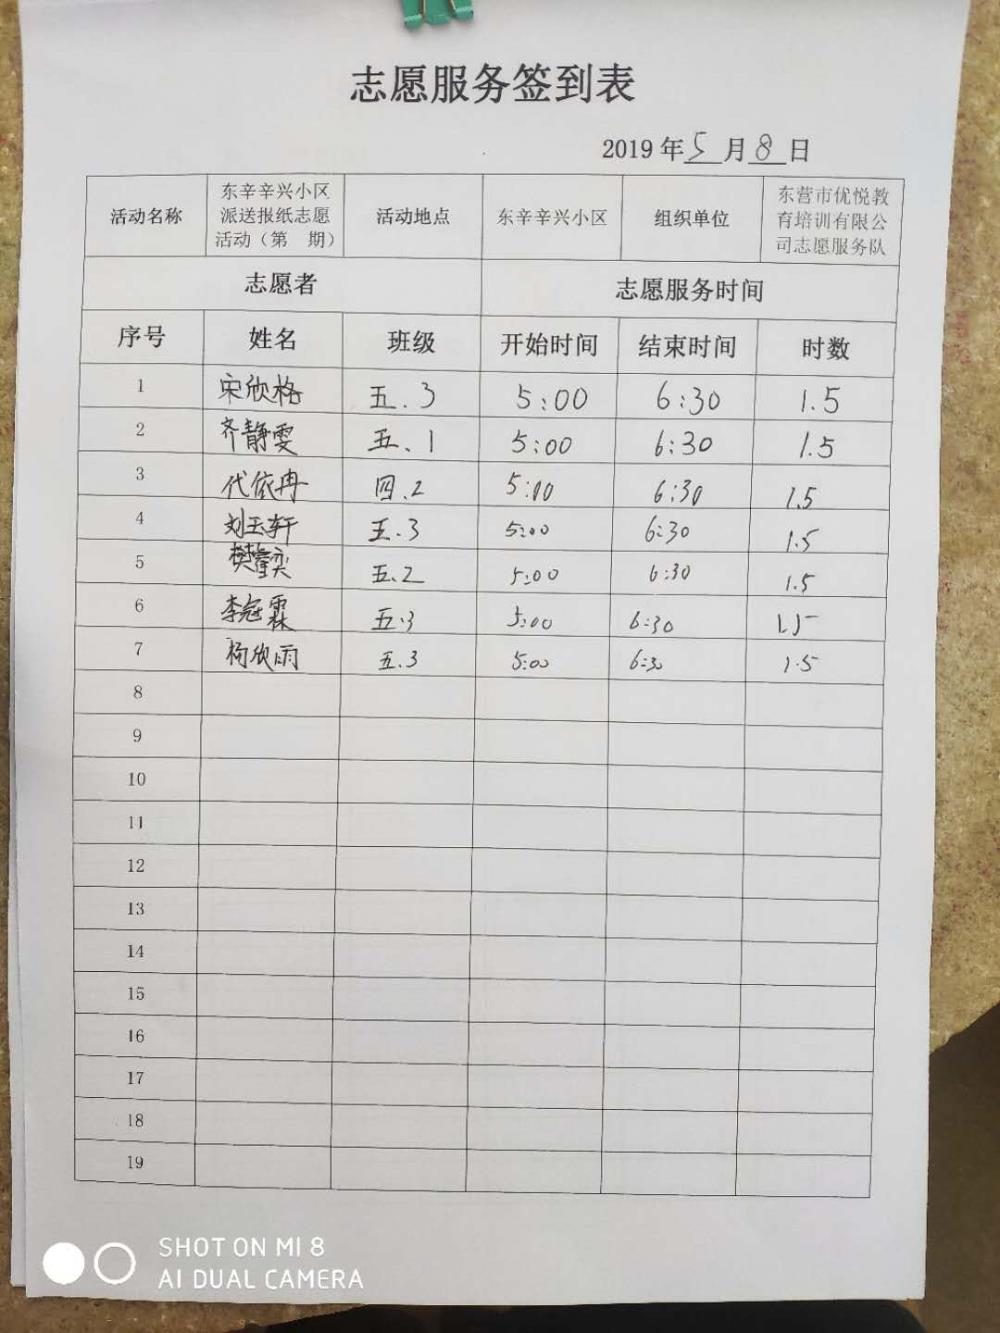 志愿服务签到表
2019年5月8日
活动名称 东辛辛兴小区派送报纸志愿活动（第 期） 活动地点 东辛辛兴小区 组织单位 东营市优悦教育培训有限公司志愿服务队
志愿者 志愿服务时间
序号 姓名 班级 开始时间 结束时间 时数
1 宋欣格 五.3 5:00 6:30 1.5
2 齐静雯 五、1 5:00 6:30 1.5
3 代依冉 四.2 5:00 6:30 1.5
4 刘玉轩 五.3 5:00 6:30 1.5
5 樊 奕 五.2 5:00 6:30 1.5
6 李冠霖 五.3 5:00 6:30 1.5
7 杨欣雨 五.3 5:00 6:30 1.5
8
9
10
11
12
13
14
15
16
17
18
19
SHOT ON MI 8
AI DUAL CAMERA